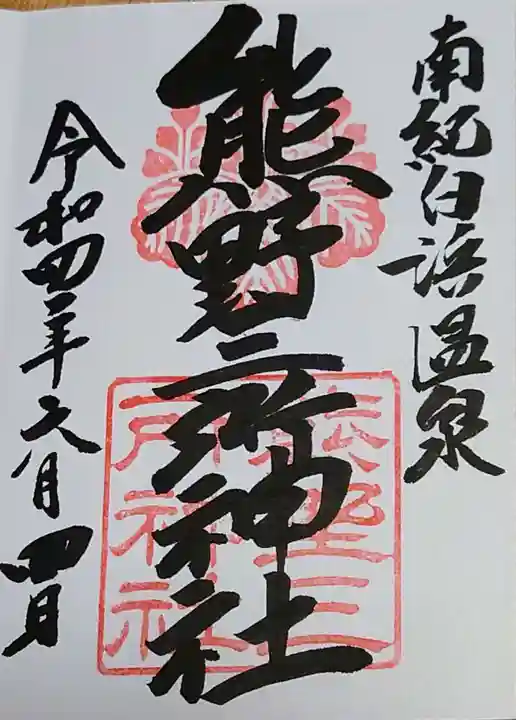 南紀白浜温泉
熊野三所神社
熊野三
所神社
令和四年六月四日